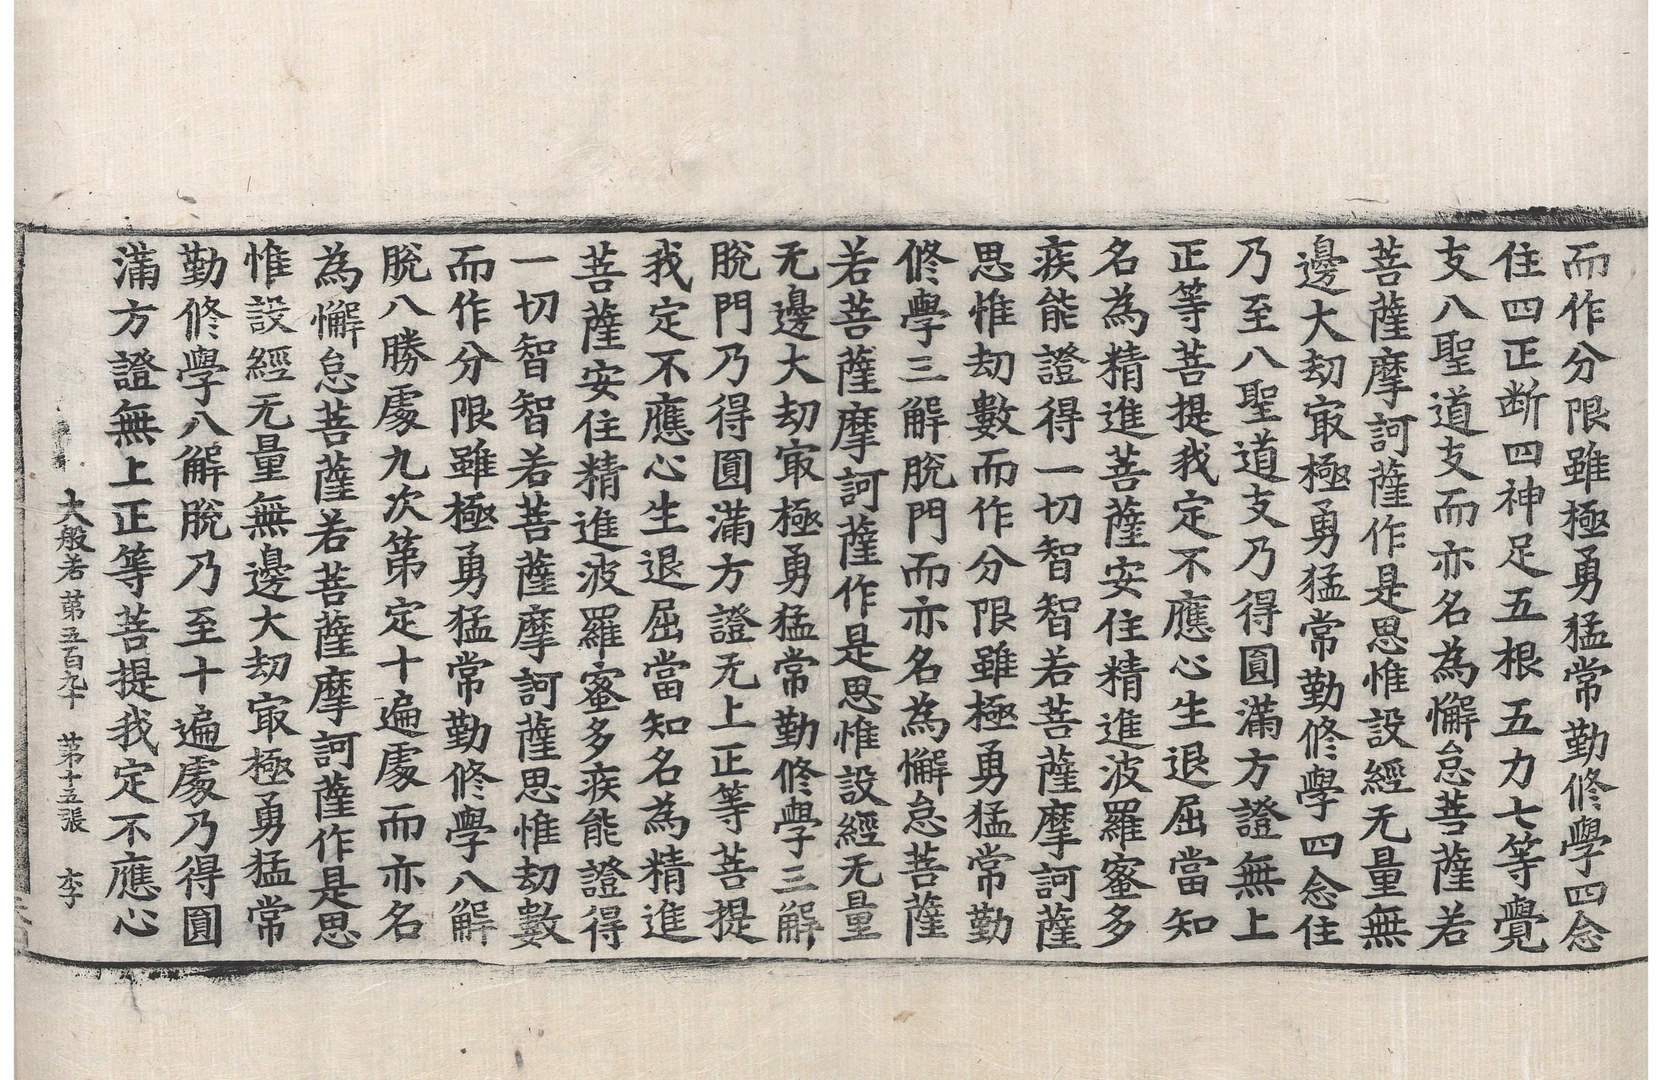 而作分限雖極勇猛常勤修學四念
住四正断四神足五根五力七等覺
支八聖道支而亦名為懈怠菩薩若
菩薩摩訶薩作是思惟設經无量無
邊大劫㝡極勇猛常勤修學四念住
乃至八聖道支乃得圓滿方證無上
正等菩提我定不應心生退屈當知
名為精進菩薩安住精進波羅蜜多
疾能證得一切智智若菩薩摩訶薩
思惟劫數而作分限雖極勇猛常勤
修學三解脫門而亦名為懈怠菩薩
若菩薩摩訶薩作是思惟設經无量
无邊大劫㝡極勇猛常勤修學三解
脫門乃得圓滿方證无上正等菩提
我定不應心生退屈當知名為精進
菩薩安住精進波羅蜜多疾能證得
一切智智若菩薩摩訶薩思惟劫數
而作分限雖極勇猛常勤修學八解
脫八勝處九次第定十遍處而亦名
為懈怠菩薩若菩薩摩訶薩作是思
惟設經无量無邊大劫㝡極勇猛常
勤修學八解脫乃至十遍處乃得圓
滿方證無上正等菩提我定不應心
大般若第五百九十 第十五張 李